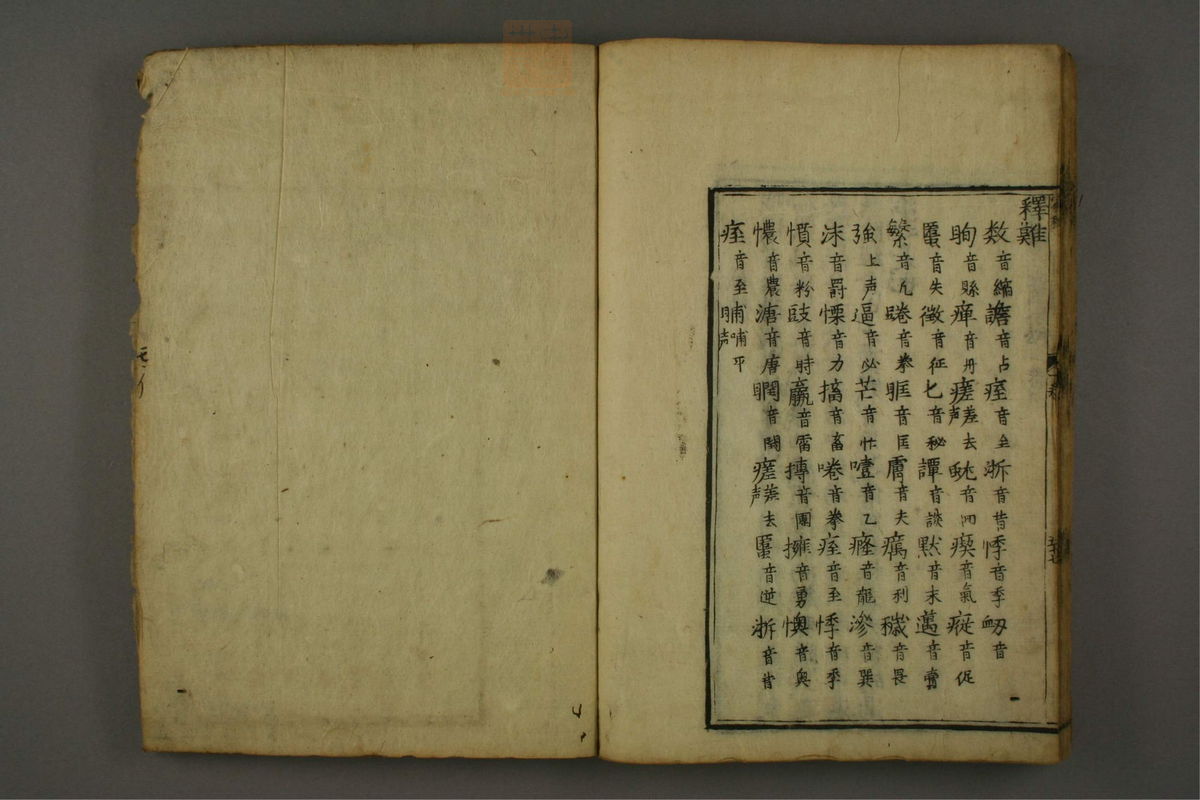 釋難
数音縮譫音占痓音至浙音昔悸音季衂音
眴音縣痺音丹瘥差去声 音 瘈音氣 音促
䘌音失徵音征匕音秘譚音談默音末邁音賣
繁音凡踡音拳眶音匡膚音夫癘音利穢音畏
強上声逼音必芒音忙噎音乙癃音龍滲音巽
沫音爵慄音力搐音畜啳音拳痓音至悸音季
憤音粉豉音時羸音雷摶音團擁音勇懊音奥
憹音農溏音唐瞤音閏瘥差去声䘌音逆浙音昔
痓音至晡哺平声